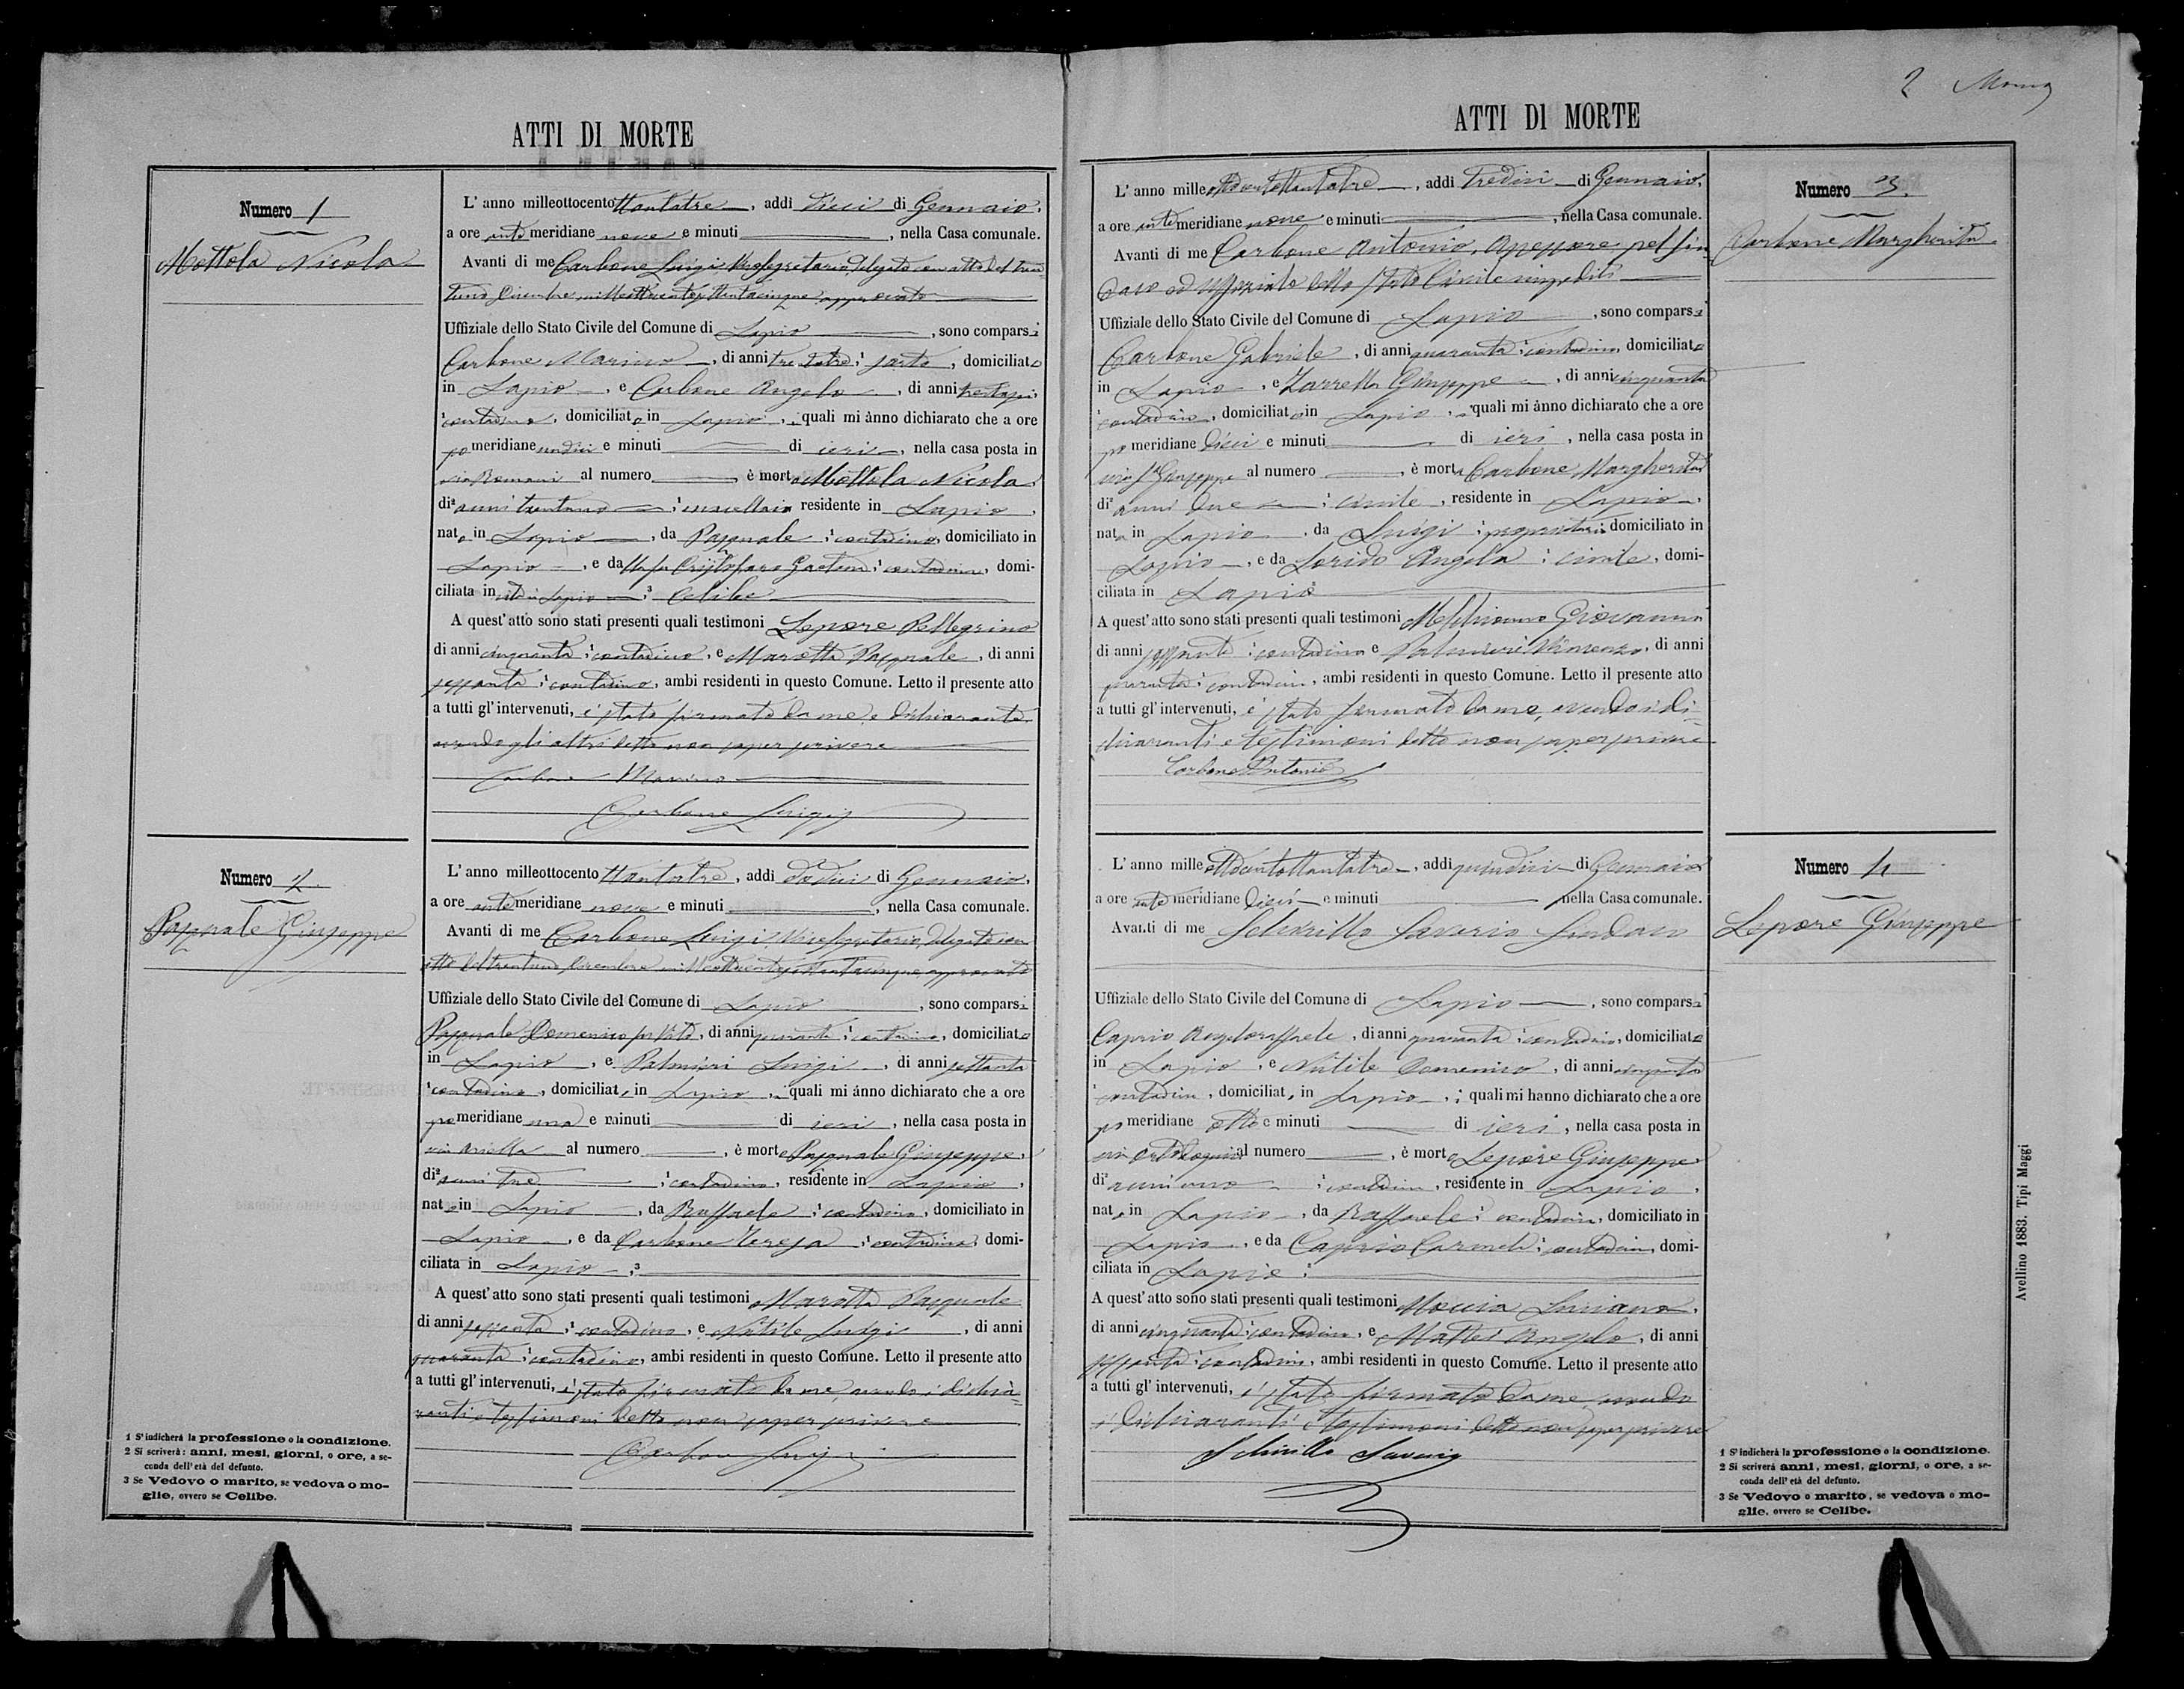 ATTI DI MORTE
Numero 1
Mottola Nicola
L'anno milleottocento ttantatre, addì dieci di Gennaio,
a ore ante meridiane nove e minuti , nella Casa comunale.
Avanti di me Carbone Luigi Vicesegretario, delegato con atto del tren
tuno Dicembre milleottocentosettantacinque approvato
Uffiziale dello Stato Civile del Comune di Lapio , sono comparsi
Carbone Marino , di anni trentatre, sarto , domiciliato
in Lapio , e Carbone Angelo , di anni trentasei,
contadino, domiciliato in Lapio , i quali mi ànno dichiarato che a ore
po meridiane undici e minuti di ieri , nella casa posta in
via Romani al numero è morto Mottola Nicola,
di² anni trentuno , macellaio residente in Lapio ,
nato in Lapio , da Pasquale , contadino, domiciliato in
Lapio , e da Cristofaro Gaetana, contadina, domi-
ciliata in vita in Lapio ,³ Celibe
A quest' atto sono stati presenti quali testimoni Lepore Pellegrino
di anni cinquanta, contadino, e Marotta Pasquale , di anni
sessanta, contadino, ambi residenti in questo Comune. Letto il presente atto
a tutti gl' intervenuti, è stato firmato da me, e dichiarante
avendo gli altri detto non saper scrivere
Carbone Marino
Carbone Luigi
Numero 2
Pasquale Giuseppe
L'anno milleottocento ttantatre, addì dodici di Gennaio,
a ore ante meridiane nove e minuti , nella Casa comunale.
Avanti di me Carbone Luigi Vicesegretario, delegato con
atto del trentuno Dicembre milleottocentosettantacinque approvato
Uffiziale dello Stato Civile del Comune di Lapio , sono comparsi
Pasquale Domenico fu Vito, di anni quaranta, contadino, domiciliato
in Lapio , e Palmieri Luigi , di anni settanta
contadino , domiciliato in Lapio , i quali mi ànno dichiarato che a ore
po meridiane una e minuti di ieri , nella casa posta in
via Ariella al numero , è morto Pasquale Giuseppe,
di² anni tre , contadino, residente in Lapio ,
nato in Lapio , da Raffaele , contadino, domiciliato in
Lapio , e da Carbone Teresa , contadina, domi-
ciliata in Lapio ,³
A quest' atto sono stati presenti quali testimoni Marotta Pasquale
di anni sessanta, contadino, e Nutile Luigi , di anni
quaranta, contadino, ambi residenti in questo Comune. Letto il presente atto
a tutti gl' intervenuti, è stato firmato da me, avendo i dichia
ranti e testimoni detto non saper scrivere
Carbone Luigi
1 S'indicherà la professione o la condizione.
2 Si scriverà: anni, mesi, giorni, o ore, a se-
conda dell'età del defunto.
3 Se Vedovo o marito, se vedova o mo-
glie, ovvero se Celibe.
2
ATTI DI MORTE
Numero 3
Carbone Margherita
L'anno mille ottocentottantatre , addì tredici di Gennaio,
a ore ante meridiane nove e minuti , nella Casa comunale.
Avanti di me Carbone Antonio, Assessore pel Sin
daco ed Uffiziale dello Stato Civile impediti
Uffiziale dello Stato Civile del Comune di Lapio , sono comparsi
Carbone Gabriele , di anni quaranta, contadino, domiciliato
in Lapio , e Zarrella Giuseppe , di anni cinquanta
contadino , domiciliato in Lapio , i quali mi ànno dichiarato che a ore
po meridiane dieci e minuti di ieri , nella casa posta in
via S. Giuseppe al numero , è morta Carbone Margherita
di² anni due , civile , residente in Lapio ,
nata in Lapio , da Luigi , proprietario domiciliato in
Lapio , e da Angela , civile , domi-
ciliata in Lapio
A quest' atto sono stati presenti quali testimoni Giovanni
di anni sessanta, contadino e Palmieri Vincenzo, di anni
quaranta, contadino, ambi residenti in questo Comune. Letto il presente atto
a tutti gl' intervenuti, è stato firmato da me, avendo i di
chiaranti e testimoni detto non saper scrivere
Carbone Antonio
Numero 4
Lepore Giuseppe
L'anno mille ottocentottantatre , addì quindici di Gennaio
a ore ante meridiane dieci e minuti nella Casa comunale.
Avanti di me Schirillo Saverio Sindaco
Uffiziale dello Stato Civile del Comune di Lapio , sono comparsi
Caprio Angeloraffaele , di anni quaranta, contadino, domiciliato
in Lapio , e Nutile Domenico , di anni cinquanta
contadino , domiciliato in Lapio , i quali mi hanno dichiarato che a ore
po meridiane otto e minuti di ieri , nella casa posta in
via al numero , è morto Lepore Giuseppe
di² anni uno , contadino, residente in Lapio ,
nato in Lapio , da Raffaele, contadino, domiciliato in
Lapio , e da Caprio Carmela, contadina, domi-
ciliata in Lapio ,
A quest' atto sono stati presenti quali testimoni Moccia Luciano ,
di anni cinquanta, contadino, e Mattei Angelo , di anni
sessanta, contadino, ambi residenti in questo Comune. Letto il presente atto
a tutti gl' intervenuti, è stato firmato da me, avendo
i dichiaranti e testimoni detto non saper scrivere
Schirillo Saverio
1 S'indicherà la professione o la condizione.
2 Si scriverà anni, mesi, giorni, o ore, a se-
conda dell'età del defunto.
3 Se Vedovo o marito, se vedova o mo-
glie, ovvero se Celibe.
Avellino 1883. Tipi Maggi